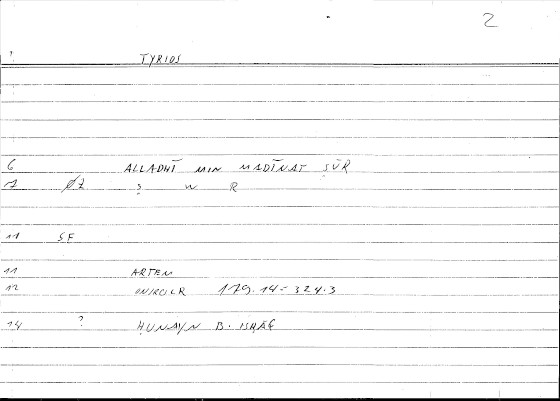 2
? TYRIOS
6 ALLADHĪ MIN MADĪNAT ṢŪR
7 Ø7 Ṣ W R
11 SF
11 ARTEM
12 ONIROCR 179.14 = 324.3
14 ? ḤUNAYN B. ISḤĀQ